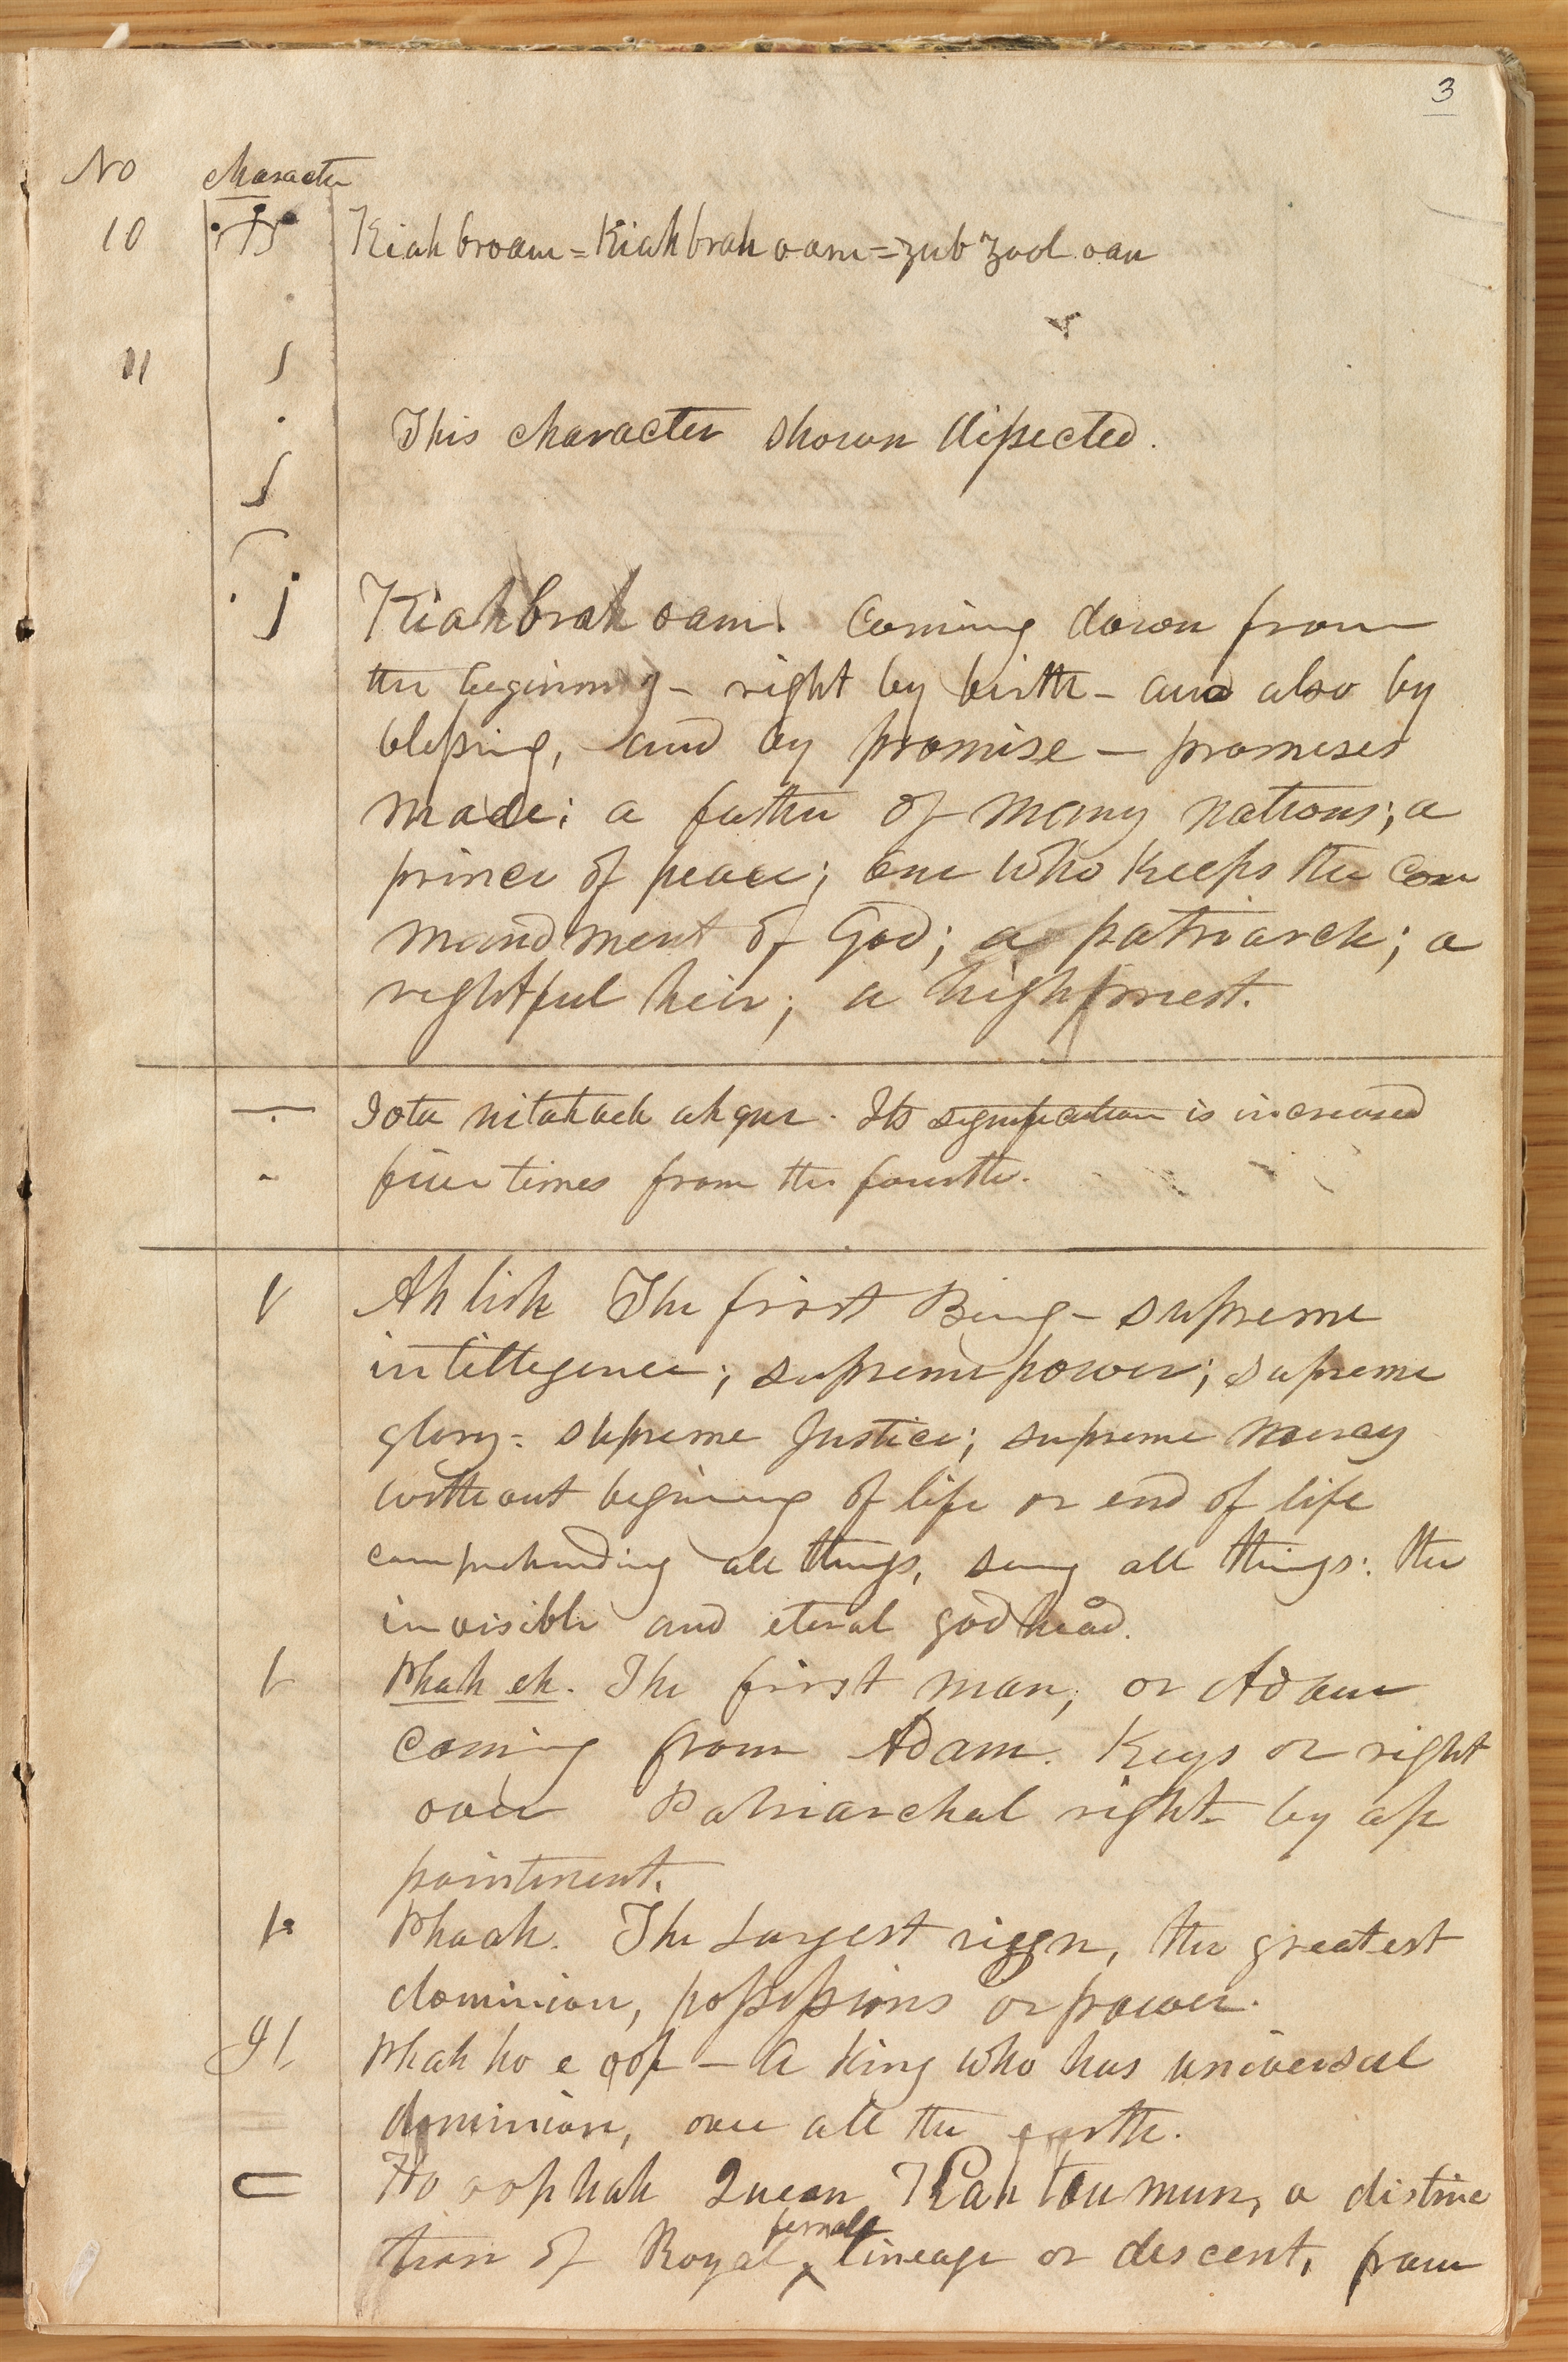 3
No Character
10 Kiah broam = Kiah brah oam = zub zool oan
11
This character shown dissected.
Kiah brah oam. Coming down from
the begining - right by birth - and also by
blessing, and by promise - promises
made; a father of many nations; a
prince of peace; one who keeps the com
mandment of God; a patriarch; a
rightful heir; a high priest.
Iota nitahach ah que. Its signification is increased
five times from the fourth.
Ah lish The first Being - supreme
intelligence; supreme power; supreme
glory = supreme Justice; supreme mercy
without begining of life or end of life
comprehending all things, seing all things: the
invisible and eternal godhead.
Phah eh. The first man, or Adam
coming from Adam. Keys or right
over Patriarchal right by ap
pointment.
Phaah. The Largest reign, the greatest
dominion, possessions or power.
Phah ho e oop - A King who has universal
dominion, over all the earth.
Ho oop hah Queen Kah tou mun, a distinc
tion of Royal female lineage or descent, from